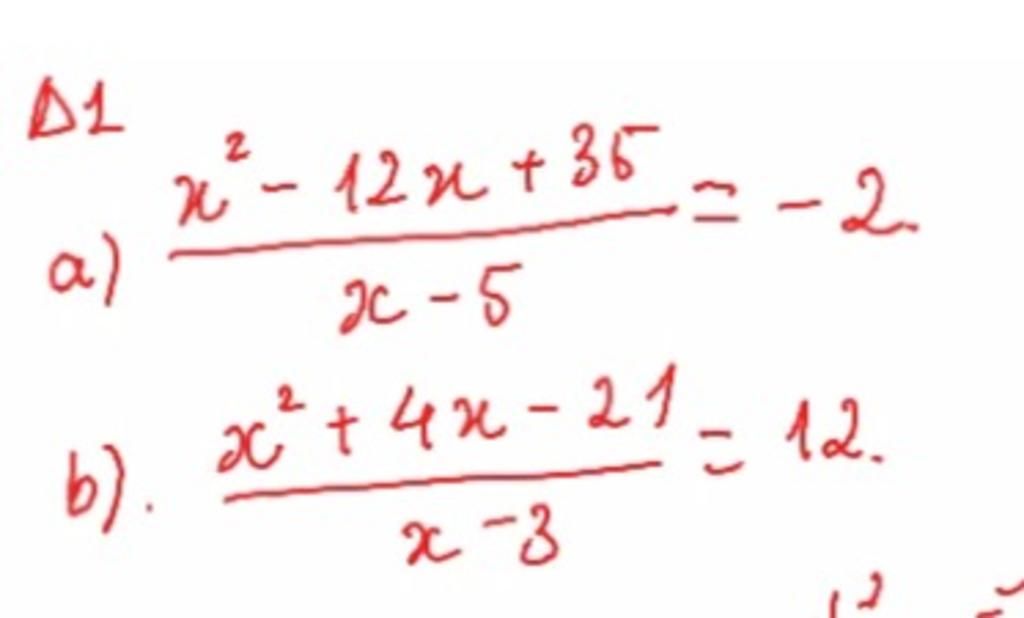 Δ1
a) \frac{x^2 - 12x + 35}{x - 5} = -2.
b). \frac{x^2 + 4x - 21}{x - 3} = 12.